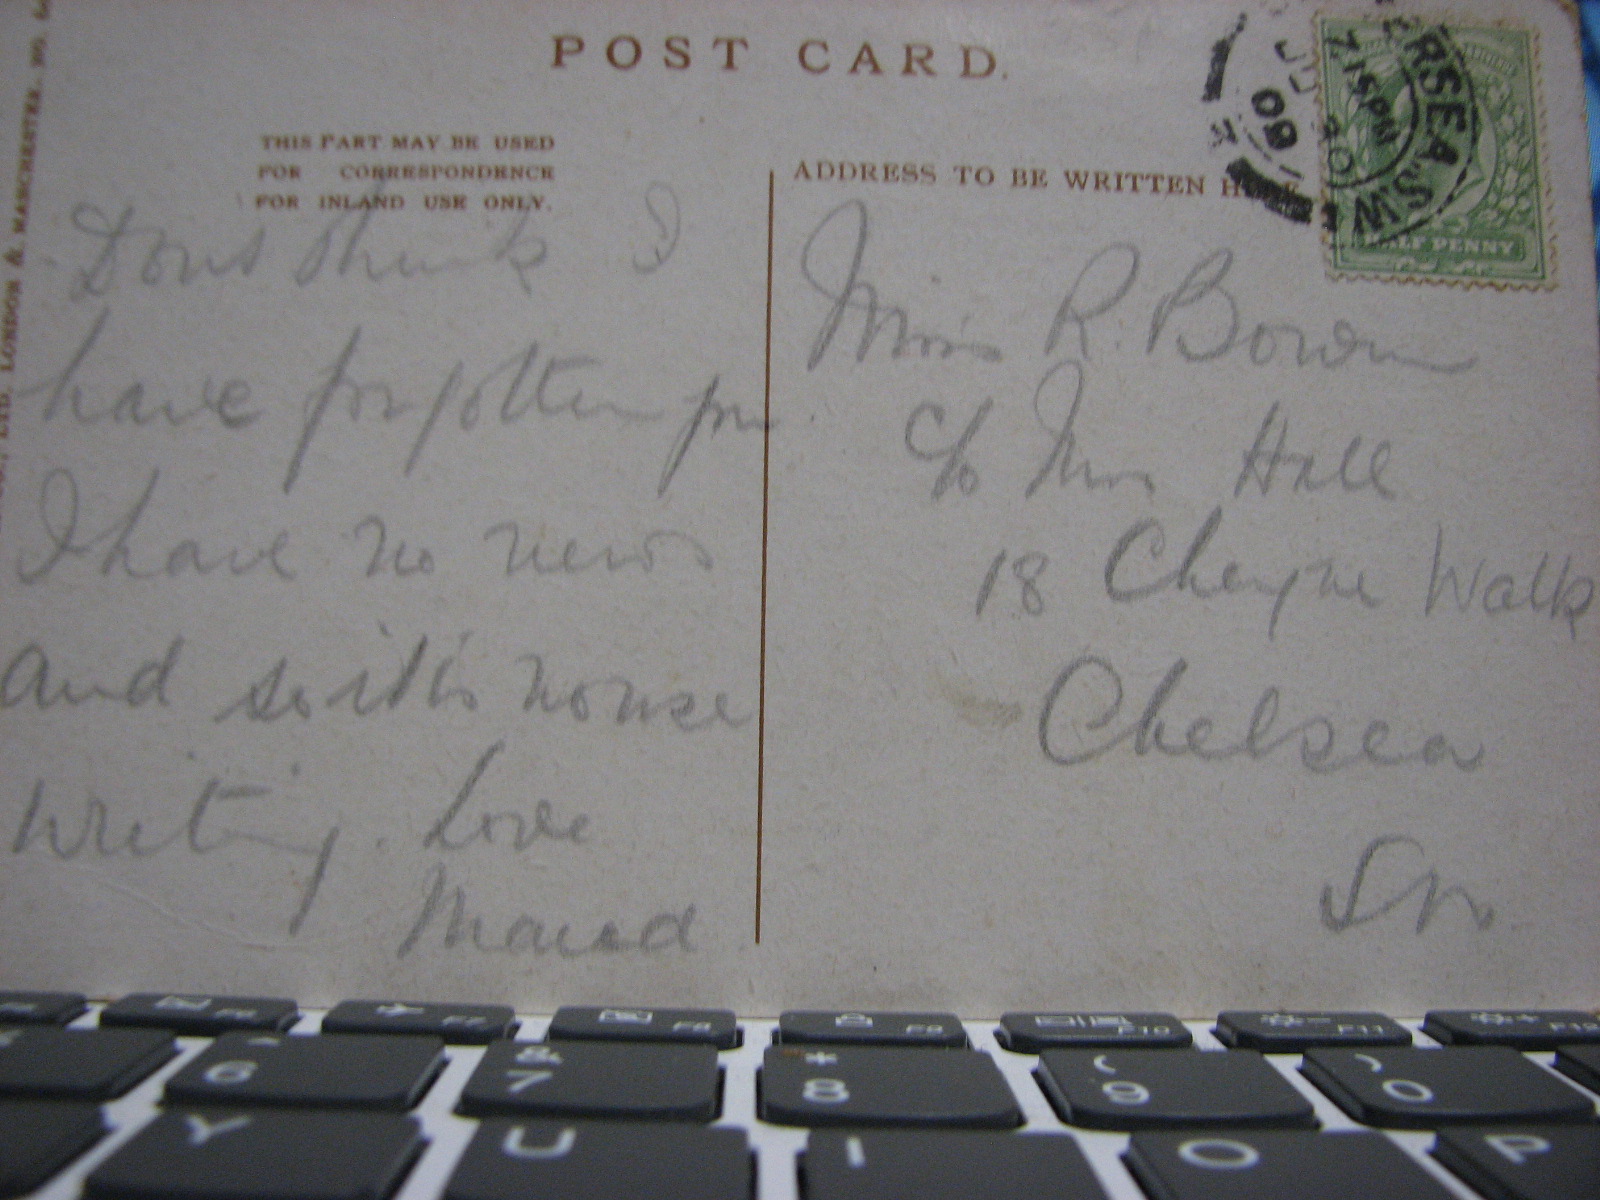 POST CARD.
THIS PART MAY BE USED
FOR CORRESPONDENCE
FOR INLAND USE ONLY.
Dont think I
have forgotten you
I have no news
and so it's no use
writing. Love
Maud
ADDRESS TO BE WRITTEN
Miss R. Bowen
c/o Mrs Hall
18 Cheyne Walk
Chelsea
SW.
ERSEA. S.W
7.15 PM
JU
09
HALF PENNY
LTD. LONDON & MANCHESTER. NO.
F6 F7 F8 F9 F10 F11 F12
6 & 7 * 8 ( 9 ) 0
Y U I O P